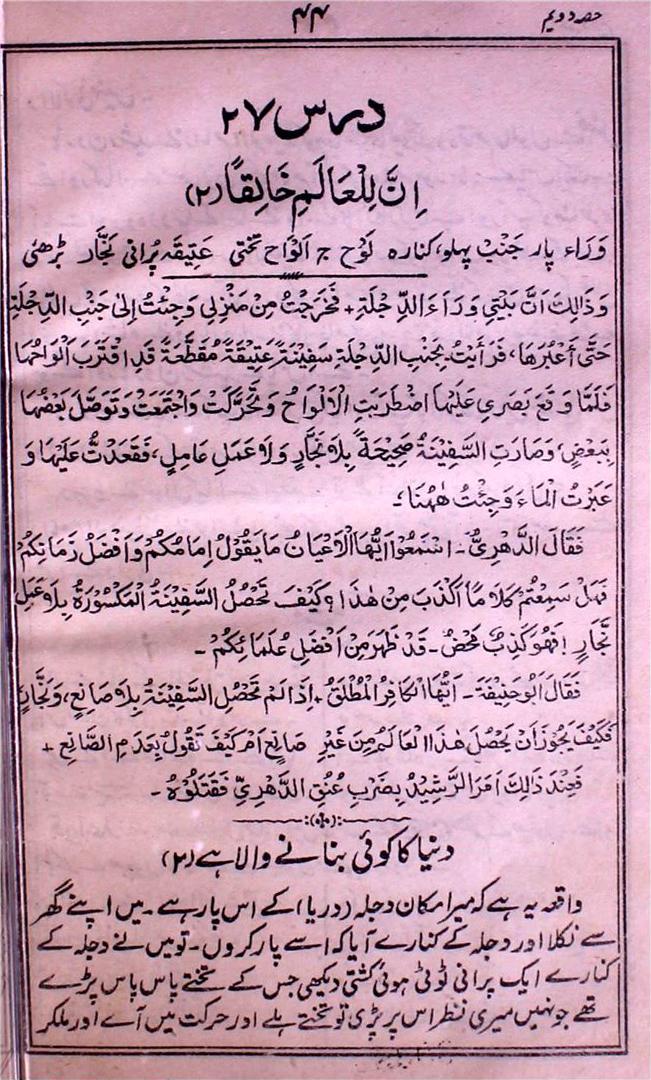 حصہ دویم
۴۴
درس ۲۷
اِنَّ لِلْعَالَمِ خَالِقًا (۲)
وَرَاء پار جَنْب پہلو، کنارہ لَوْح ج اَلْوَاح تختی عَتِیْقَہ پُرانی نَجَّار بڑھئی
وَذَالِكَ اَنَّ بَيْتِي وَرَاءَ الدِّجْلَةِ + فَخَرَجْتُ مِنْ مَنْزِلِي وَجِئْتُ اِلىٰ جَنْبِ الدِّجْلَةِ
حَتّٰى أَعْبُرَهَا، فَرَأَيْتُ بِجَنْبِ الدِّجْلَةِ سَفِيْنَةً عَتِيْقَةً مُقَطَّعَةً قَدِ اقْتَرَبَ اَلْوَاحُهَا
فَلَمَّا وَقَعَ بَصَرِي عَلَيْهَا اضْطَرَبَتِ الْاَلْوَاحُ وَتَحَرَّكَتْ وَاجْتَمَعَتْ وَتَوَصَّلَ بَعْضُهَا
بِبَعْضٍ، وَصَارَتِ السَّفِيْنَةُ صَحِيْحَةً بِلَا نَجَّارٍ وَلَا عَمَلِ عَامِلٍ، فَقَعَدْتُ عَلَيْهَا وَ
عَبَرْتُ الْمَاءَ وَجِئْتُ هٰهُنَا۔
فَقَالَ الدَّهْرِيُّ۔ اسْمَعُوْا اَيُّهَا الْاَعْيَانُ مَا يَقُوْلُ اِمَامُكُمْ وَاَفْضَلُ زَمَانِكُمْ
فَهَلْ سَمِعْتُمْ كَلَامًا اَكْذَبَ مِنْ هٰذَا؟ كَيْفَ تَحْصُلُ السَّفِيْنَةُ الْمَكْسُوْرَةُ بِلَا عَمَلِ
نَجَّارٍ! فَهُوَ كَذِبٌ مَحْضٌ۔ قَدْ ظَهَرَ مِنْ اَفْضَلِ عُلَمَائِكُمْ۔
فَقَالَ اَبُوْ حَنِيْفَةَ۔ اَيُّهَا الْكَافِرُ الْمُطْلَقُ + اِذَا لَمْ تَحْصُلِ السَّفِيْنَةُ بِلَا صَانِعٍ، وَنَجَّارٍ
فَكَيْفَ يَجُوْزُ اَنْ يَحْصُلَ هٰذَا الْعَالَمُ مِنْ غَيْرِ صَانِعٍ اَمْ كَيْفَ تَقُوْلُ بِعَدَمِ الصَّانِعِ +
فَعِنْدَ ذَالِكَ اَمَرَ الرَّشِيْدُ بِضَرْبِ عُنُقِ الدَّهْرِيِّ فَقَتَلُوْهُ۔
دنیا کا کوئی بنانے والا ہے (۲)
واقعہ یہ ہے کہ میرا مکان دجلہ (دریا) کے اس پار ہے۔ میں اپنے گھر
سے نکلا اور دجلہ کے کنارے آیا کہ اسے پار کروں۔ تو میں نے دجلہ کے
کنارے ایک پرانی ٹوٹی ہوئی کشتی دیکھی جس کے تختے پاس پاس پڑے
تھے جونہیں میری نظر اس پر پڑی تو تختے ہلے اور حرکت میں آے اور ملکر